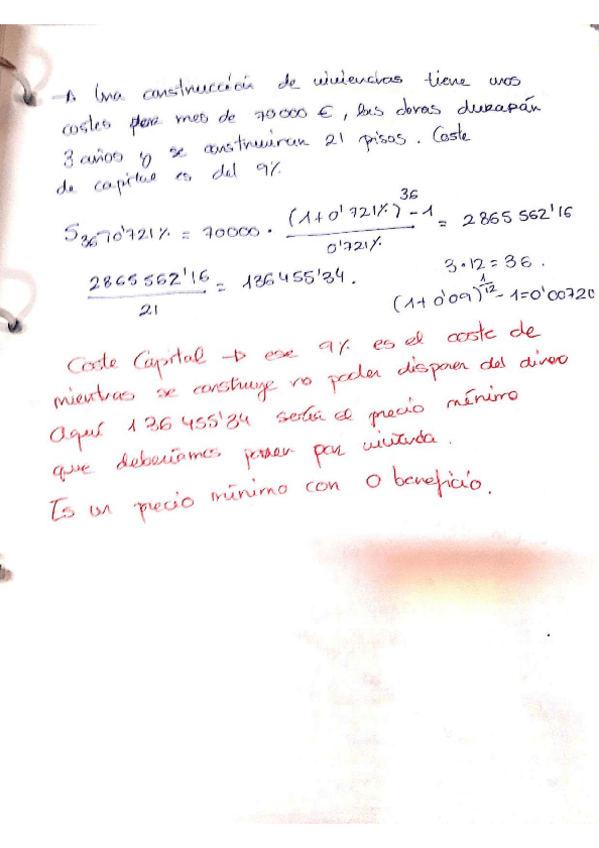 → Una construcción de viviendas tiene unos
costes para mes de 70000 €, las obras durarán
3 años y se construiran 21 pisos. Coste
de capital es del 9%
S36¬0'721% = 70000 · ((1+0'721%)^36 - 1) / 0'721% = 2865562'16
3·12 = 36.
2865562'16 / 21 = 136455'34.
(1+0'09)^(1/12) - 1 = 0'00720
Coste Capital → ese 9% es el coste de
mientras se construye no poder disponer del dinero
Aquí 136455'34 sería el precio mínimo
que deberíamos poner por vivienda.
Es un precio mínimo con 0 beneficio.